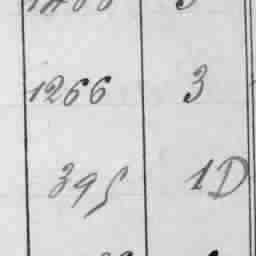 1266 3
395 1D